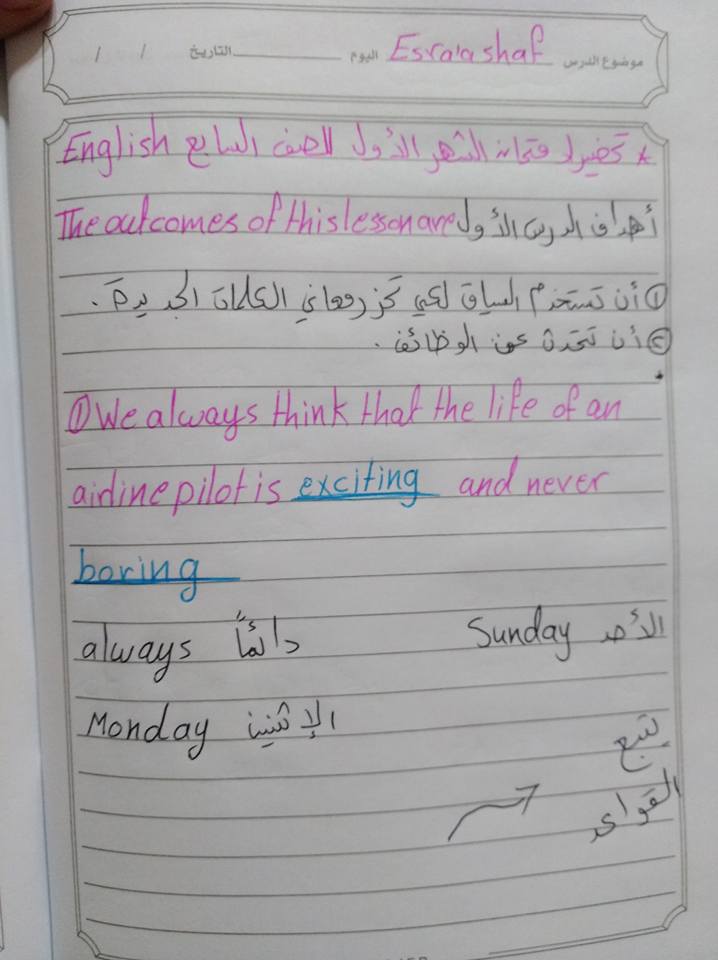 موضوع الدرس Esra'a shaf اليوم التاريخ / /
* تحضير لامتحان الشهر الأول للصف السابع English
أهداف الدرس الأول The outcomes of this lesson are
① أن تستخدم السياق لكي تحزر معاني الكلمات الجديدة .
② أن تتحدث عن الوظائف .
① We always think that the life of an
airline pilot is exciting and never
boring
always دائماً Sunday الأحد
Monday الإثنين
يتبع
القواعد